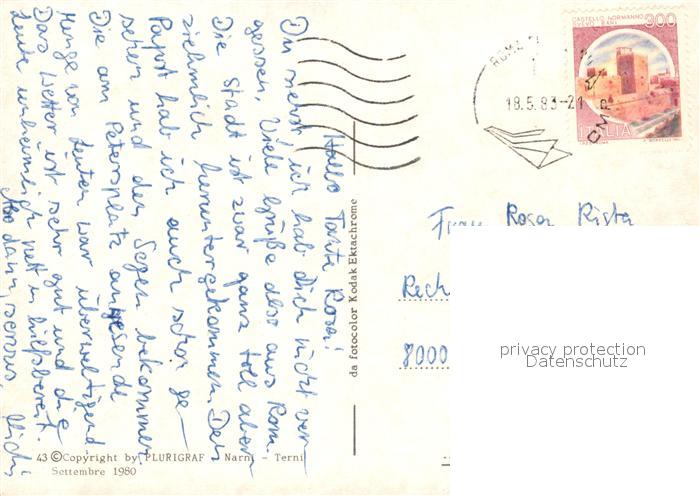 Hallo Tante Rosa!
Du siehst ich hab Dich nicht ver-
gessen. Viele Grüße also aus Rom.
Die Stadt ist zwar ganz toll aber
ziehmlich heruntergekommen. Den
Papst hab ich auch schon ge-
sehen und den Segen bekommen.
Die am Petersplatz anwesende
Menge von Leuten war überweltigend.
Das Wetter ist sehr gut und die
Leute unheimlich nett u. hilfsbereit.
Also dann, servus,
43 © Copyright by PLURIGRAF - Narni - Terni
Settembre 1980
da fotocolor Kodak Ektachrome
ROMA
18.5.83-21
CASTELLO NORMANNO
SVEVO BARI
300
ITALIA
Frau Rosa Rista
Rech
8000
privacy protection
Datenschutz